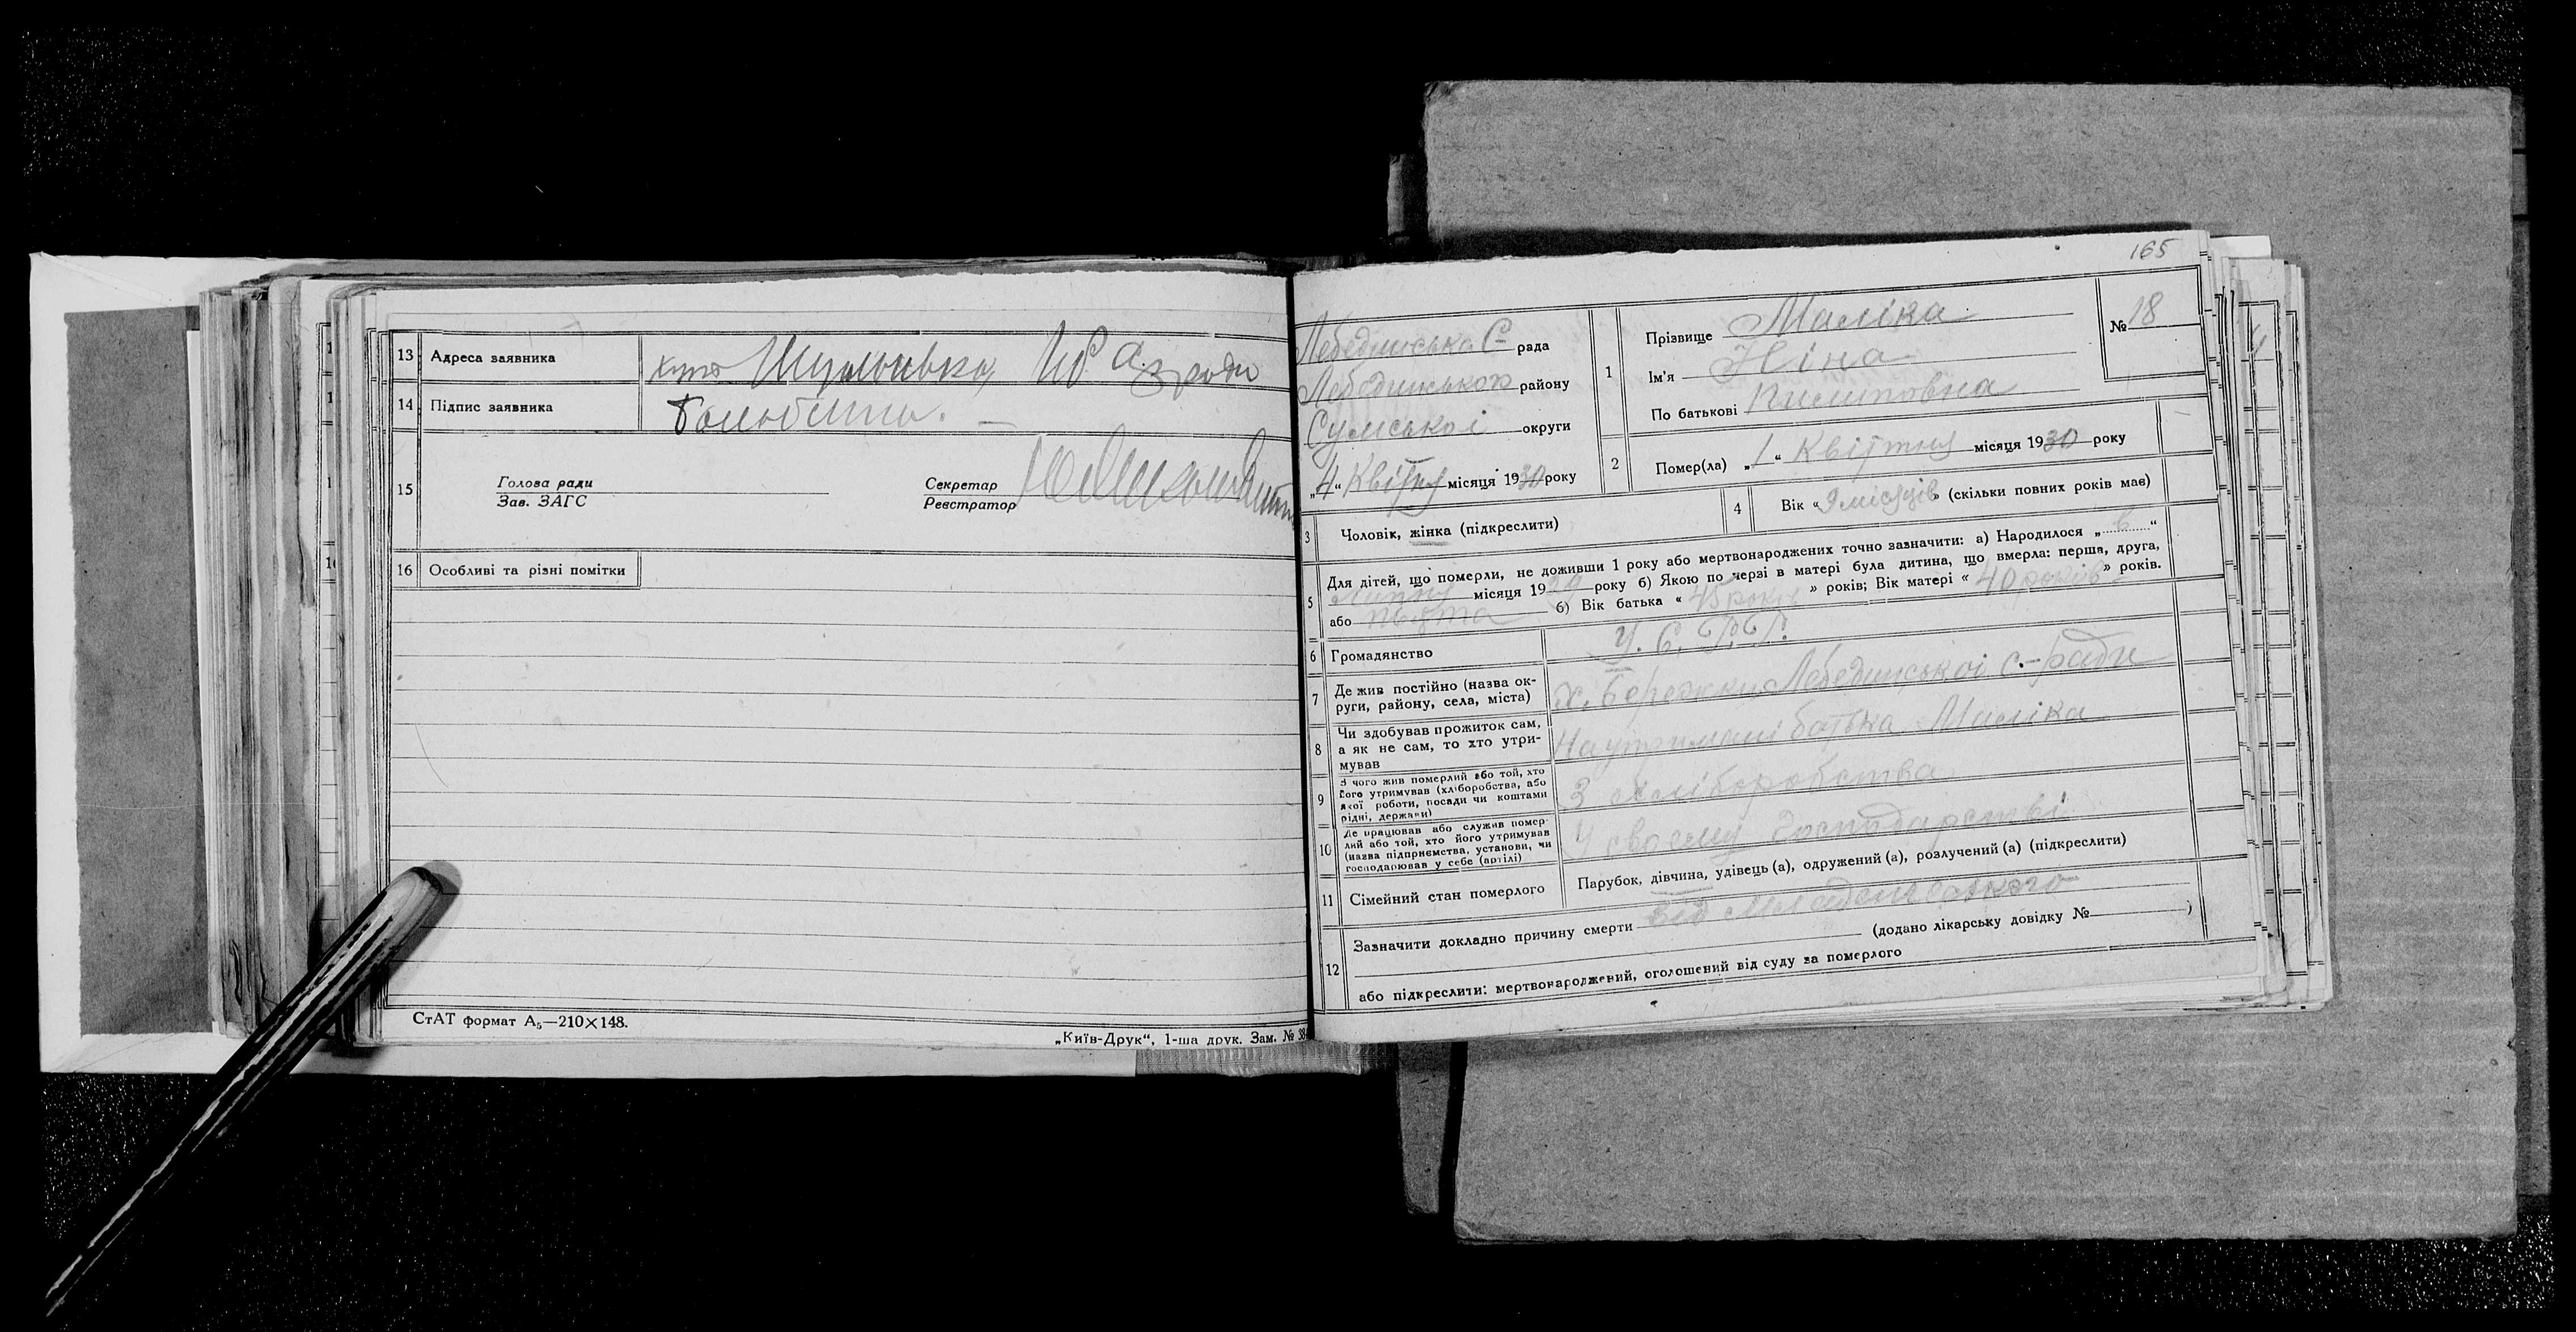 13 Адреса заявника хут Шумівка,
14 Підпис заявника
15 Голова ради
Зав. ЗАГС
Секретар
Реєстратор
16 Особливі та різні помітки
СтАТ формат А₅—210×148.
„Київ-Друк“, 1-ша друк. Зам. № 38
165
Лебединська С рада
Лебединського району
Сумської округи
„4“ Квітня місяця 1930 року
1 Прізвище Маліка
Ім'я Ніна
По батькові Пилиповна
№ 18
2 Помер(ла) „1“ Квітня місяця 1930 року
3 Чоловік, жінка (підкреслити)
4 Вік «9 місяців» (скільки повних років мав)
5 Для дітей, що померли, не доживши 1 року або мертвонароджених точно зазначити: а) Народилося „6“
Липня місяця 1929 року б) Якою по черзі в матері була дитина, що вмерла: перша, друга,
або пьята б) Вік батька « 45 років » років; Вік матері « 40 років » років.
6 Громадянство У. С. Р. Р.
7 Де жив постійно (назва ок-
руги, району, села, міста) х. Бережки Лебединської с.-ради
8 Чи здобував прожиток сам,
а як не сам, то хто утри-
мував На утриманні батька Маліка
9 З чого жив померлий або той, хто
його утримував (хліборобства, або
якої роботи, посади чи коштами
рідні, держави) З хліборобства
10 Де працював або служив помер-
лий або той, хто його утримував
(назва підприємства, установи, чи
господарював у себе (артілі) У своему господарстві
11 Сімейний стан померлого Парубок, дівчина, удівець (а), одружений (а), розлучений (а) (підкреслити)
12 Зазначити докладно причину смерти від Младенческого
(додано лікарську довідку № )
або підкреслити: мертвонароджений, оголошений від суду за померлого